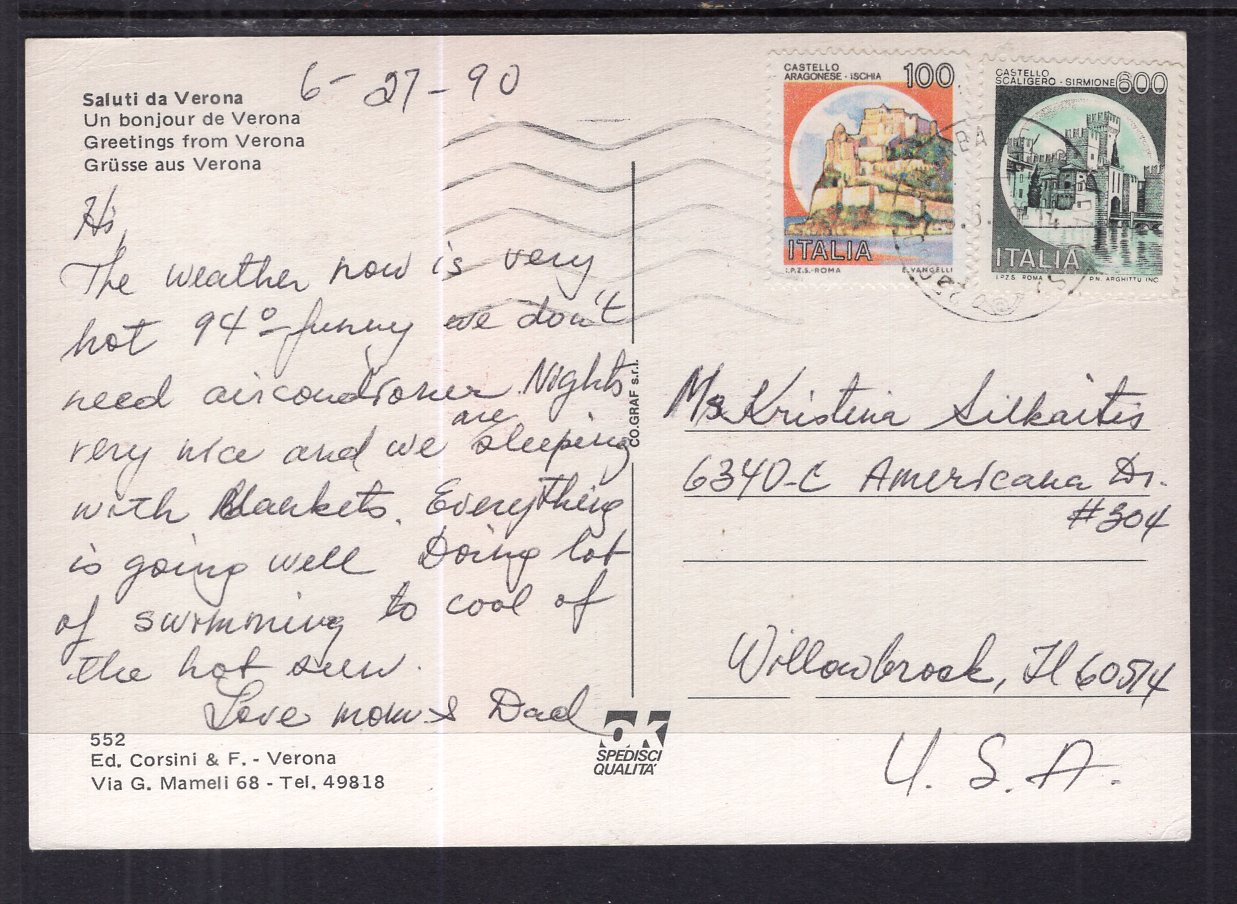 Saluti da Verona
Un bonjour de Verona
Greetings from Verona
Grüsse aus Verona
6-27-90
Hi,
The weather now is very
hot 94°-funny we don't
need aircondioner. Nights
very nice and we are sleeping
with Blankets. Everything
is going well Doing lot
of swimming to cool of
the hot sun.
Love mom & Dad
552
Ed. Corsini & F. - Verona
Via G. Mameli 68 - Tel. 49818
CO.GRAF s.r.l.
OK
SPEDISCI
QUALITA'
CASTELLO
ARAGONESE - ISCHIA 100
ITALIA
I.P.Z.S. - ROMA E. VANGELLI
CASTELLO
SCALIGERO - SIRMIONE 600
ITALIA
I.P.Z.S. ROMA P.N. ARGHITTU INC.
Ms Kristina Silkaitis
6340-C Americana Dr.
#304
Willowbrook, Il 60514
U.S.A.